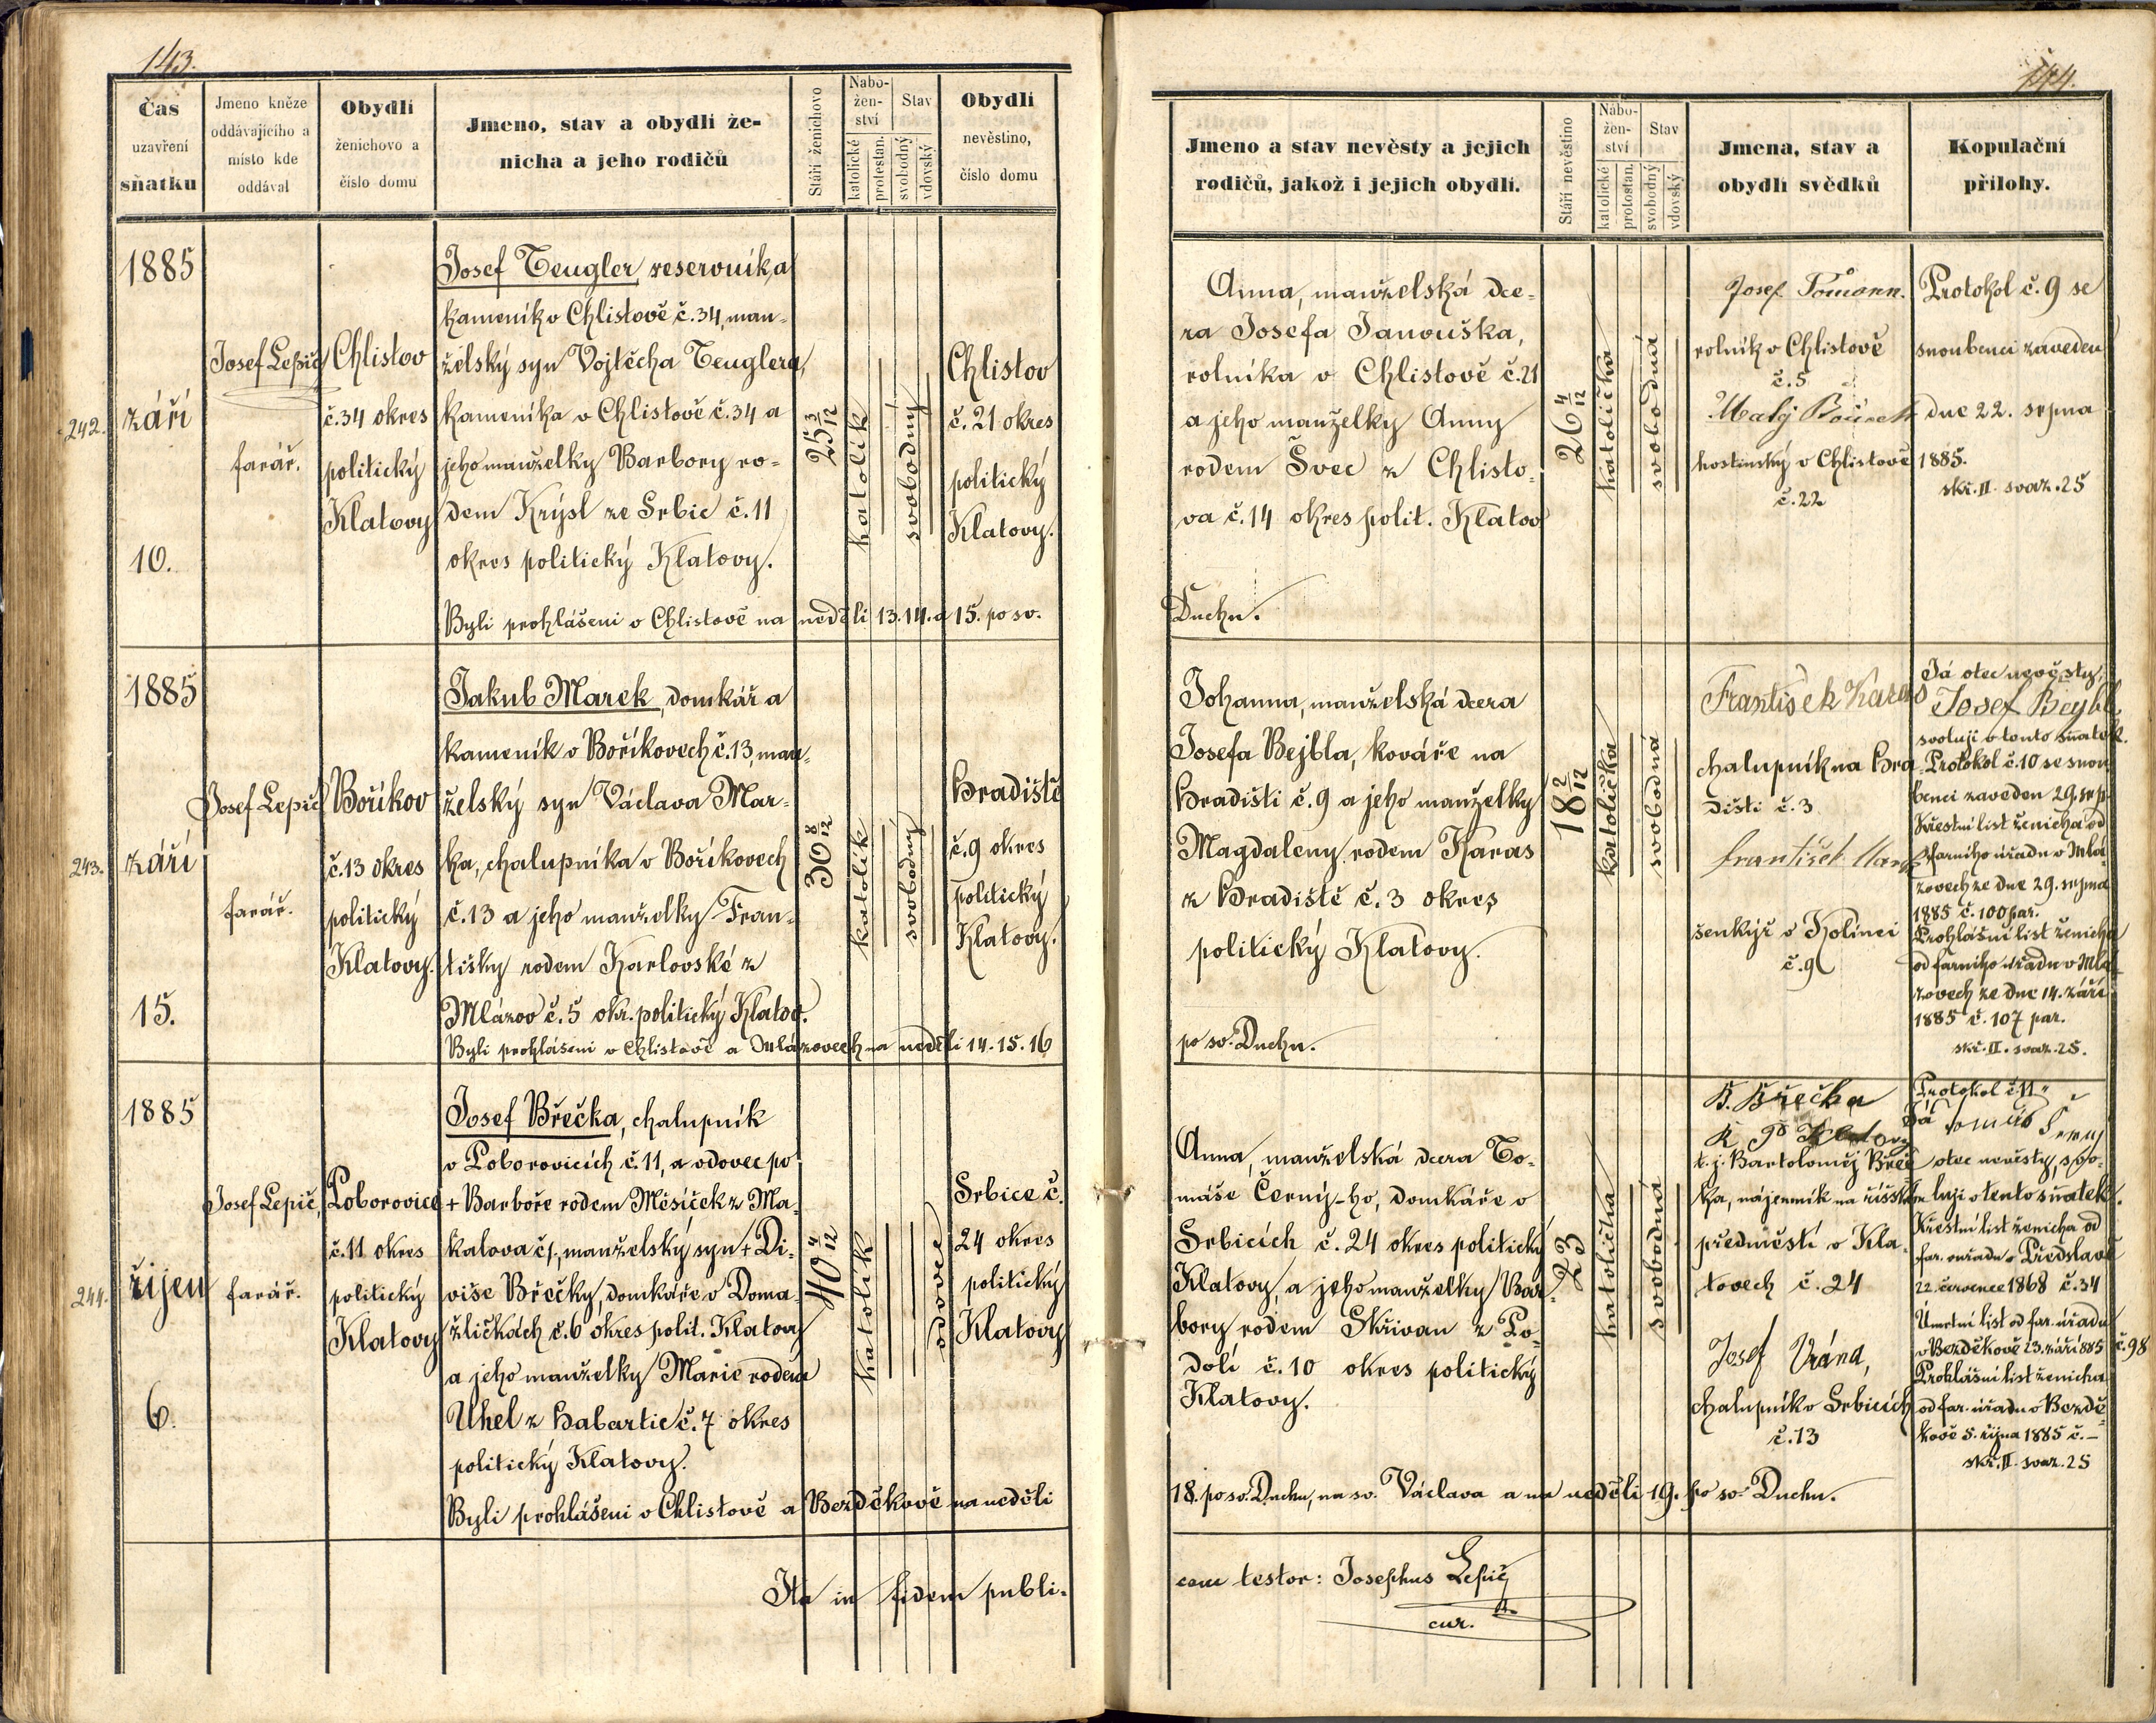 143.
Čas
uzavření
sňatku
Jmeno kněze
oddávajícího a
místo kde
oddával
Obydlí
ženichovo a
číslo domu
Jmeno, stav a obydlí že-
nicha a jeho rodičů
Stáří ženichovo
Nábo-
žen-
ství
katolické
protestan.
Stav
svobodný
vdovský
Obydlí
nevěstino,
číslo domu
242.
1885
září
10.
Josef Lepič
farář.
Chlistov
č.34 okres
politický
Klatovy
Josef Teugler, reservník, a
kameník v Chlistově č.34, man-
želský syn Vojtěcha Teuglera,
kameníka v Chlistově č.34 a
jeho manželky Barbory ro-
dem Krýsl ze Srbic č.11
okres politický Klatovy.
25 3/12
katolík
svobodný
Chlistov
č.21 okres
politický
Klatovy.
Byli prohlášeni v Chlistově na neděli 13.14. a 15. po sv.
243.
1885
září
15.
Josef Lepič
farář.
Boříkov
č.13 okres
politický
Klatovy.
Jakub Marek, domkář a
kameník v Boříkovech č.13, man-
želský syn Václava Mar-
ka, chalupníka v Boříkovech
č.13 a jeho manželky Fran-
tišky rodem Karlovské z
Mlázov č.5 okr. politický Klatov.
30 8/12
katolík
svobodný
Hradiště
č.9 okres
politický
Klatovy.
Byli prohlášeni v Chlistově a Mlázovech na neděli 14.15.16
244.
1885
říjen
6.
Josef Lepič,
farář.
Poborovice
č.11 okres
politický
Klatovy
Josef Břečka, chalupník
v Poborovicích č.11, a vdovec po
+ Barboře rodem Měsíček z Ma-
kalova č1, manželský syn + Di-
više Břečky, domkáře v Doma-
žličkách č.6 okres polit. Klatovy
a jeho manželky Marie rodem
Uhel z Habartic č.7 okres
politický Klatovy.
40 4/12
katolík
vdovec
Srbice č.
24 okres
politický
Klatovy
Byli prohlášeni v Chlistově a Bezděkově na neděli
Ita in fidem publi-
144.
Jmeno a stav nevěsty a jejich
rodičů, jakož i jejich obydlí.
Stáří nevěstino
Nábo-
žen-
ství
katolické
protestan.
Stav
svobodný
vdovský
Jmena, stav a
obydlí svědků
Kopulační
přílohy.
Anna, manželská dce-
ra Josefa Janouška,
rolníka v Chlistově č.21
a jeho manželky Anny
rodem Švec z Chlisto-
va č.14 okres polit. Klatov
Duchu.
26 4/12
katolička
svobodná
Josef
rolník v Chlistově
č.5
Matěj
hostinský v Chlistově
č.22
Protokol č.9 se
snoubenci zaveden
dne 22. srpna
1885.
skř. II. svaz. 25
Johanna, manželská dcera
Josefa Bejbla, kováře na
Hradišti č.9 a jeho manželky
Magdaleny rodem Karas
z Hradiště č.3 okres
politický Klatovy.
po sv. Duchu.
18 2/12
katolička
svobodná
František Karas
chalupník na Hra-
dišti č.3
František
šenkýř v Kolinci
č.9
Já otec nevěsty,
Josef Bejbl,
svoluji v tento sňatek.
Protokol č.10 se snou-
benci zaveden 29. srp.
Křestní list ženicha od
farního úřadu v Mlá-
zovech ze dne 29. srpna
1885 č.100 far.
Prohlášní list ženicha
od farního úřadu v Mlá-
zovech ze dne 14. září
1885 č.107 far.
skř. II. svaz. 25.
Anna, manželská dcera To-
máše Černý-ho, domkáře v
Srbicích č.24 okres politický
Klatovy, a jeho manželky Bar-
bory rodem Skřivan z Po-
dolí č.10 okres politický
Klatovy.
23
katolička
svobodná
B. Břečka
t. j. Bartoloměj Břeč-
ka, nájemník na říšském
předměstí v Kla-
tovech č.24
Josef Vrána,
chalupník v Srbicích
č.13
Protokol č.11
Já Tomáš Černý
otec nevěsty, svo-
luji v tento sňatek.
Křestní list ženicha od
far. úřadu v Předslavi
22. července 1868 č.34
Úmrtní list od far. úřadu
v Bezděkově 23. září 885 č.98
Prohlášní list ženicha
od far. úřadu v Bezdě-
kově 5. října 1885 č. –
skř. II. svaz. 25
18. po sv. Duchu, na sv. Václava a na neděli 19. po sv. Duchu.
cam testor: Josephus Lepič
cur.